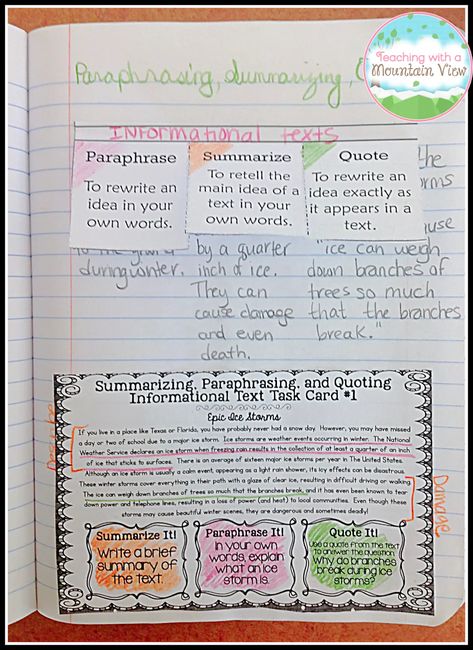 Teaching with a
Mountain View
Paraphrasing, Summarizing,
Informational texts
Paraphrase
To rewrite an
idea in your
own words.
Summarize
To retell the
main idea of a
text in your
own words.
Quote
To rewrite an
idea exactly as
it appears in a
text.
the
during winter.
by a quarter
inch of ice.
They can
cause damage
and even
death.
"ice can weigh
down branches of
trees so much
that the branches
break."
Summarizing, Paraphrasing, and Quoting
Informational Text Task Card #1
Epic Ice Storms
If you live in a place like Texas or Florida, you have probably never had a snow day. However, you may have missed
a day or two of school due to a major ice storm. Ice storms are weather events occurring in winter. The National
Weather Service declares an ice storm when freezing rain results in the collection of at least a quarter of an inch
of ice that sticks to surfaces. There is an average of sixteen major ice storms per year in The United States.
Although an ice storm is usually a calm event, appearing as a light rain shower, its icy effects can be disastrous.
These winter storms cover everything in their path with a glaze of clear ice, resulting in difficult driving or walking.
The ice can weigh down branches of trees so much that the branches break, and it has even been known to tear
down power and telephone lines, resulting in a loss of power (and heat) to local communities. Even though these
storms may cause beautiful winter scenes, they are dangerous and sometimes deadly!
Damage
Summarize It!
Write a brief
summary
of the text.
Paraphrase It!
In your own
words, explain
what an ice
storm is.
Quote It!
Use a quote from the text
to answer the question:
Why do branches
break during ice
storms?